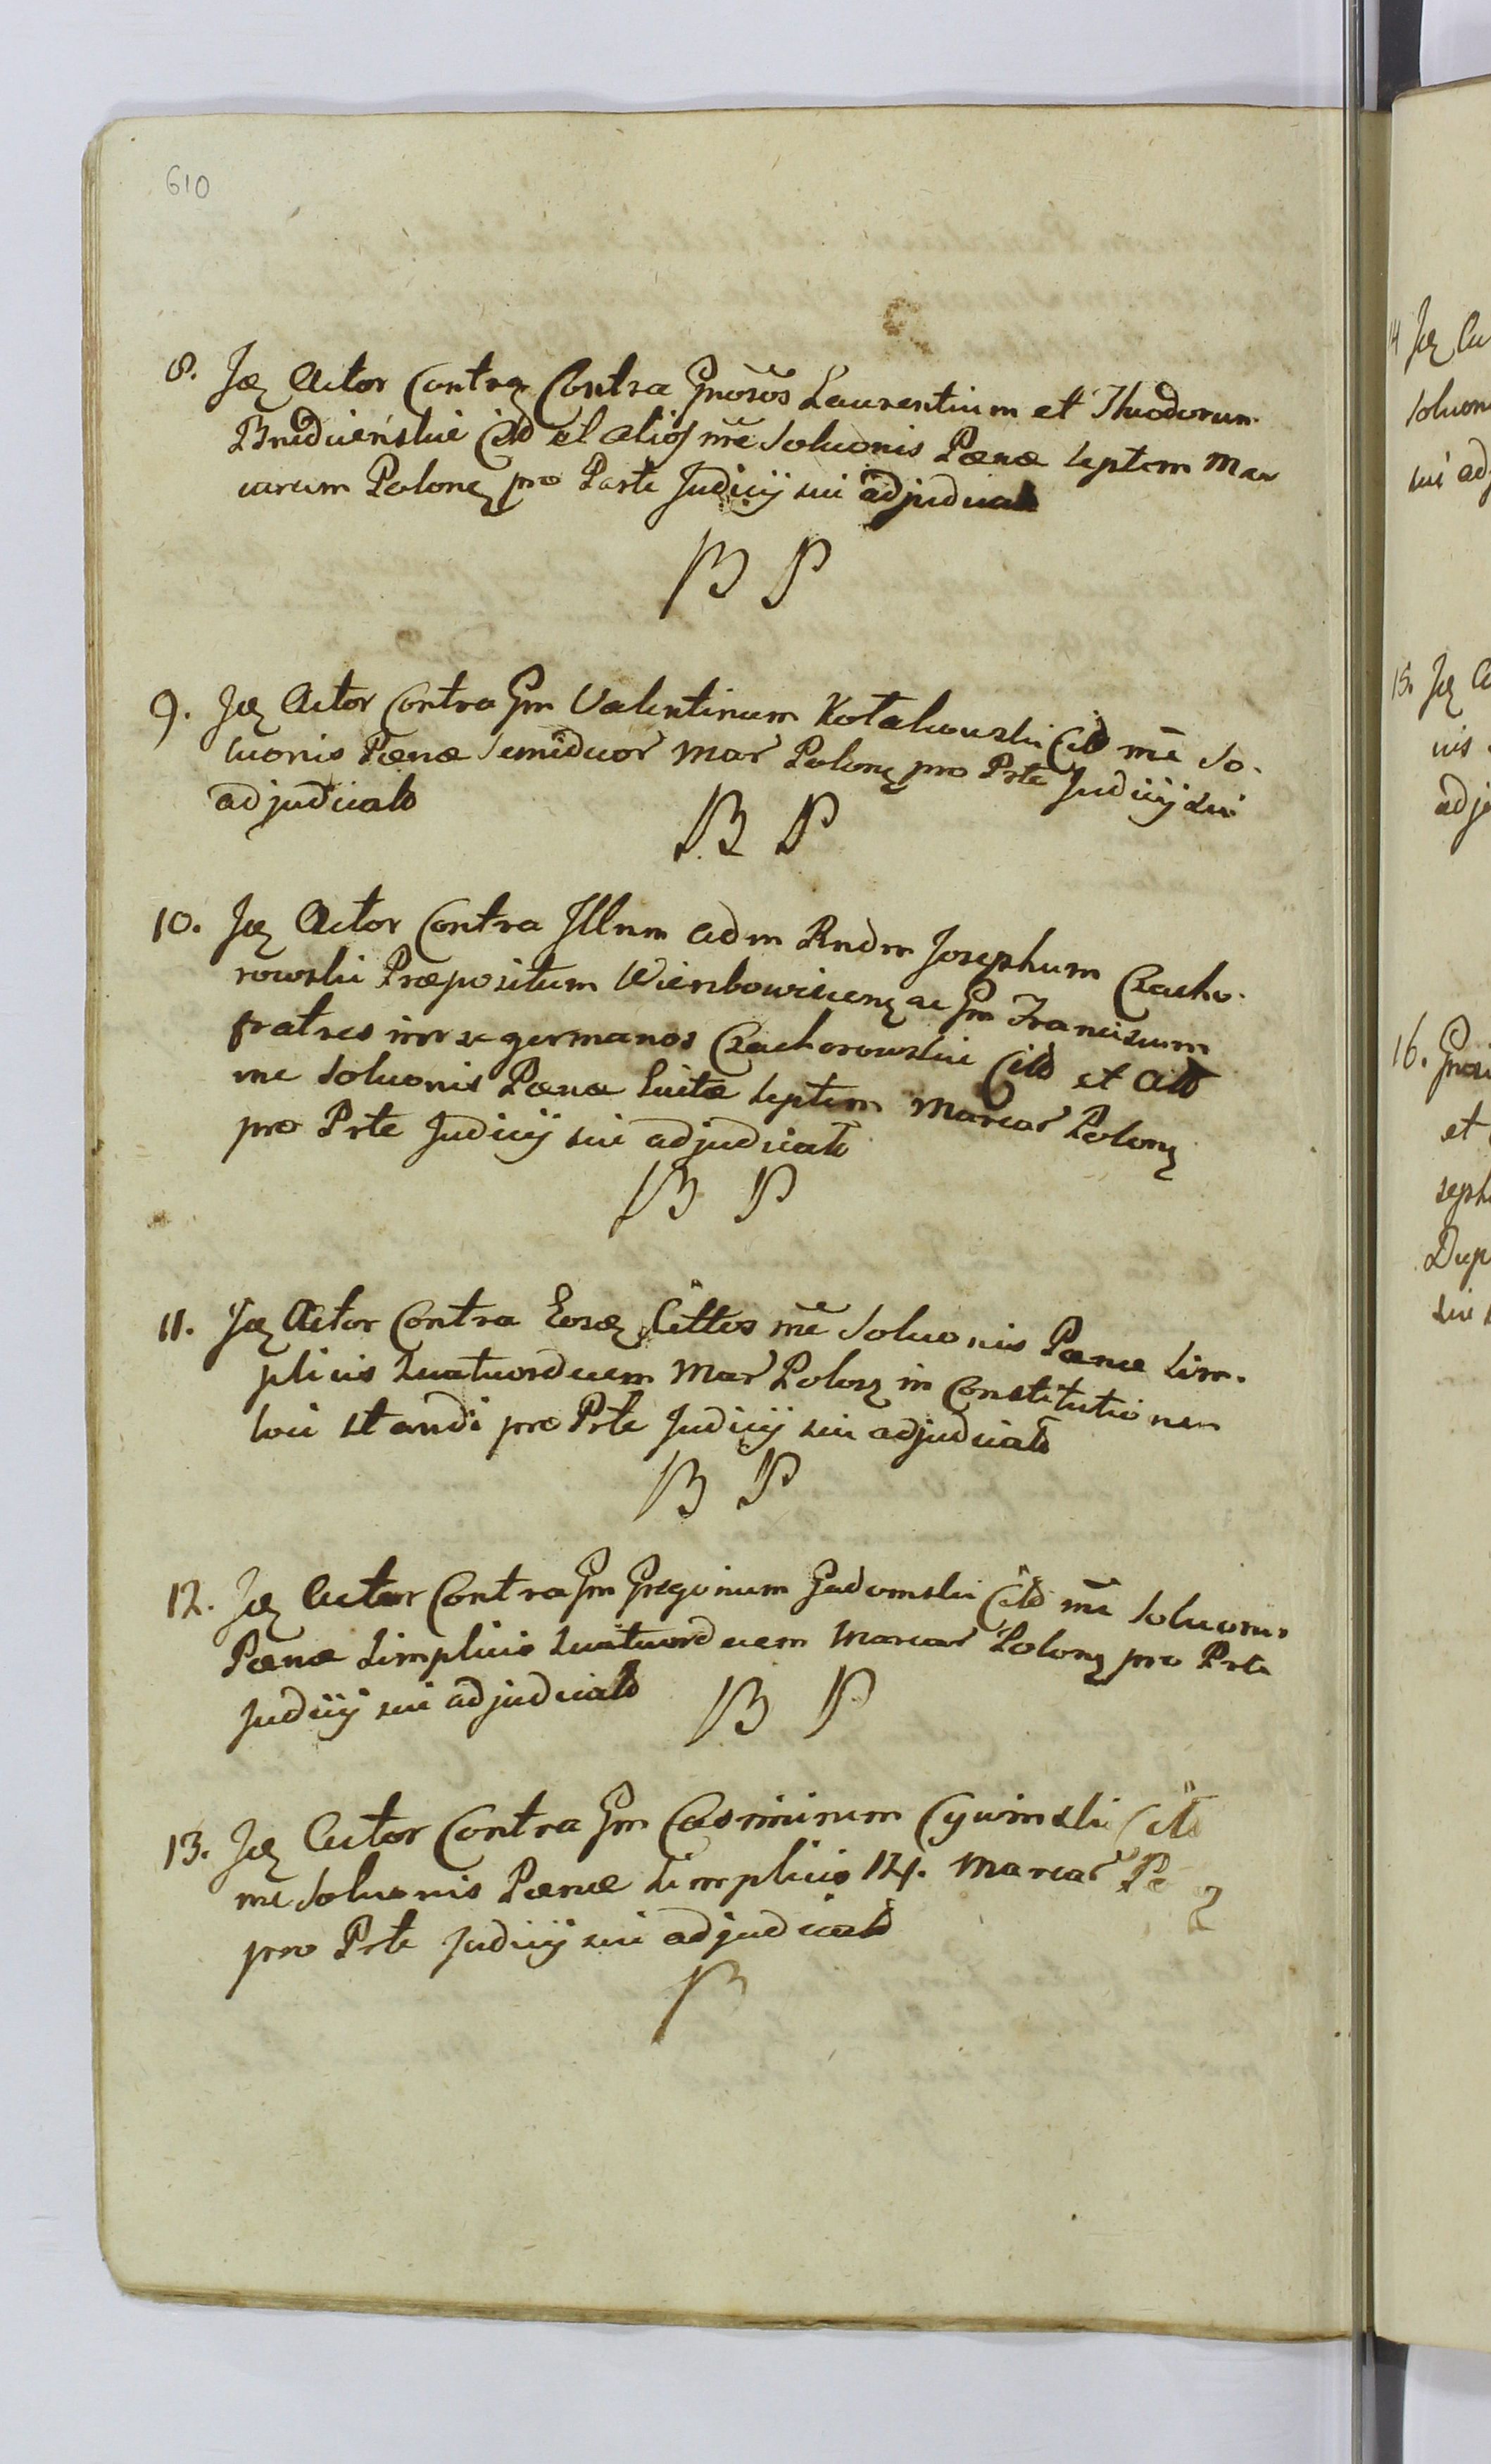 610
8. Jdꝫ Actor Contra Contra Gnosos Laurentium et Theodorum
cit et alios me Soluonis Pænæ Septem Mar
carum Polonꝫ pro Parte Judicij sui adjudicat
B P
9. Jdꝫ Actor Contra Gm Valentinum Kotakowski Citt me So-
luonis Pænæ Mar Polonꝫ pro Prte Judicij sui
adjudicat
B P
10. Jdꝫ Actor Contra Illrm adm Rndm Josephum Czacho-
rowski Præpositum Wierzbowiecenꝫ ac Gm Franciscum
fratres inr se germanos Czachorowskie Citt et Att
me Soluonis Pænæ Luitæ Septem Marcar Polonꝫ
pro Prte Judicij sui adjudicat
B P
11. Jdꝫ Actor Contra Eosdꝫ Cittos me Soluonis Pænæ Sim-
plicis Quatuordecem Mar Polonꝫ in Constitutionem
loci standi pro Prte Judicij sui adjudicat
B P
12. Jdꝫ Actor Contra Gm Gregorium Gadomski Citt me Soluonis
Pænæ Simplicis Quatuordecem Marcar Polonꝫ pro Prte
Judicij sui adjudicat
B P
13. Jdꝫ Actor Contra Gm Casimirum Cywinski Citt
me Soluonis Pænæ Simplicis 14. Marcar Po
pro Prte Judicij sui adjudicat
B
14 Jdꝫ
Soluon
sui adj
15. Jdꝫ
adj
16.
et
seph
Dup
sui